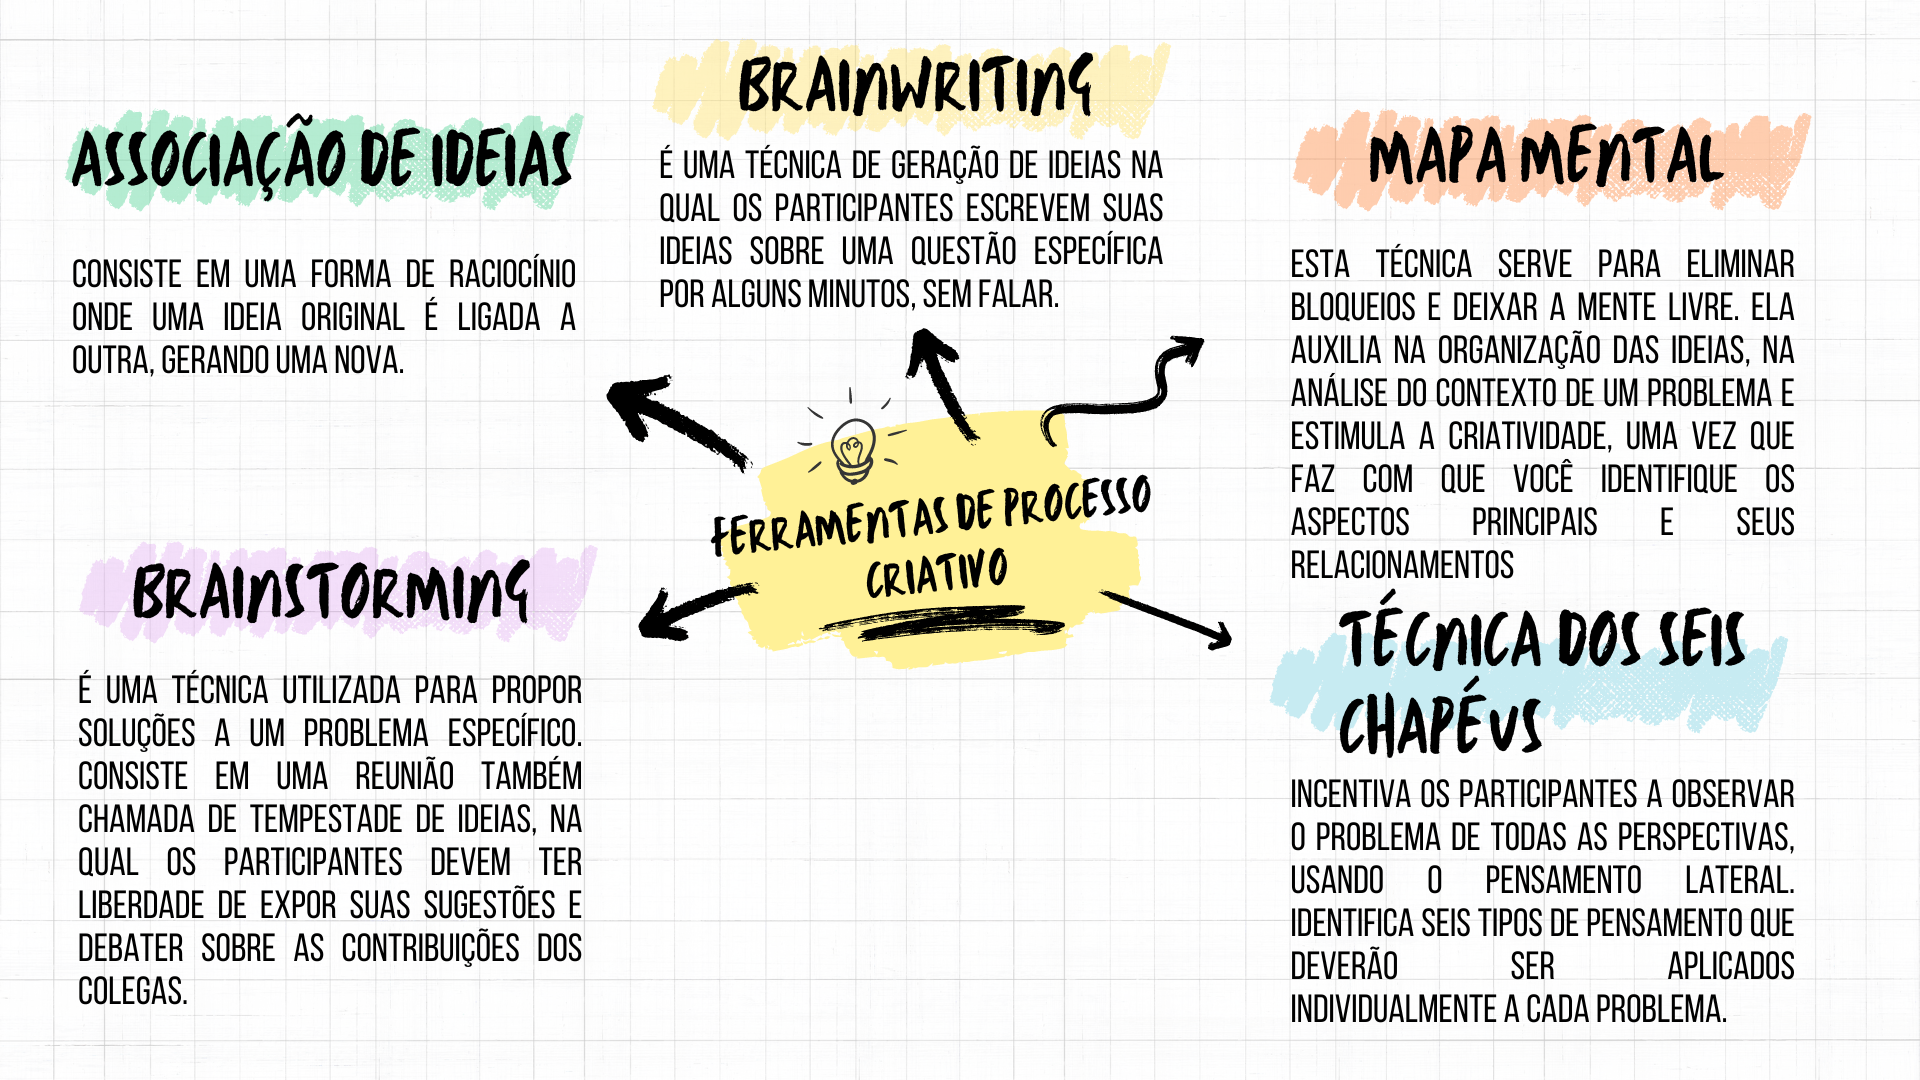 ASSOCIAÇÃO DE IDEIAS
CONSISTE EM UMA FORMA DE RACIOCÍNIO
ONDE UMA IDEIA ORIGINAL É LIGADA A
OUTRA, GERANDO UMA NOVA.
BRAINWRITING
É UMA TÉCNICA DE GERAÇÃO DE IDEIAS NA
QUAL OS PARTICIPANTES ESCREVEM SUAS
IDEIAS SOBRE UMA QUESTÃO ESPECÍFICA
POR ALGUNS MINUTOS, SEM FALAR.
MAPA MENTAL
ESTA TÉCNICA SERVE PARA ELIMINAR
BLOQUEIOS E DEIXAR A MENTE LIVRE. ELA
AUXILIA NA ORGANIZAÇÃO DAS IDEIAS, NA
ANÁLISE DO CONTEXTO DE UM PROBLEMA E
ESTIMULA A CRIATIVIDADE, UMA VEZ QUE
FAZ COM QUE VOCÊ IDENTIFIQUE OS
ASPECTOS PRINCIPAIS E SEUS
RELACIONAMENTOS
FERRAMENTAS DE PROCESSO
CRIATIVO
BRAINSTORMING
É UMA TÉCNICA UTILIZADA PARA PROPOR
SOLUÇÕES A UM PROBLEMA ESPECÍFICO.
CONSISTE EM UMA REUNIÃO TAMBÉM
CHAMADA DE TEMPESTADE DE IDEIAS, NA
QUAL OS PARTICIPANTES DEVEM TER
LIBERDADE DE EXPOR SUAS SUGESTÕES E
DEBATER SOBRE AS CONTRIBUIÇÕES DOS
COLEGAS.
TÉCNICA DOS SEIS
CHAPÉUS
INCENTIVA OS PARTICIPANTES A OBSERVAR
O PROBLEMA DE TODAS AS PERSPECTIVAS,
USANDO O PENSAMENTO LATERAL.
IDENTIFICA SEIS TIPOS DE PENSAMENTO QUE
DEVERÃO SER APLICADOS
INDIVIDUALMENTE A CADA PROBLEMA.